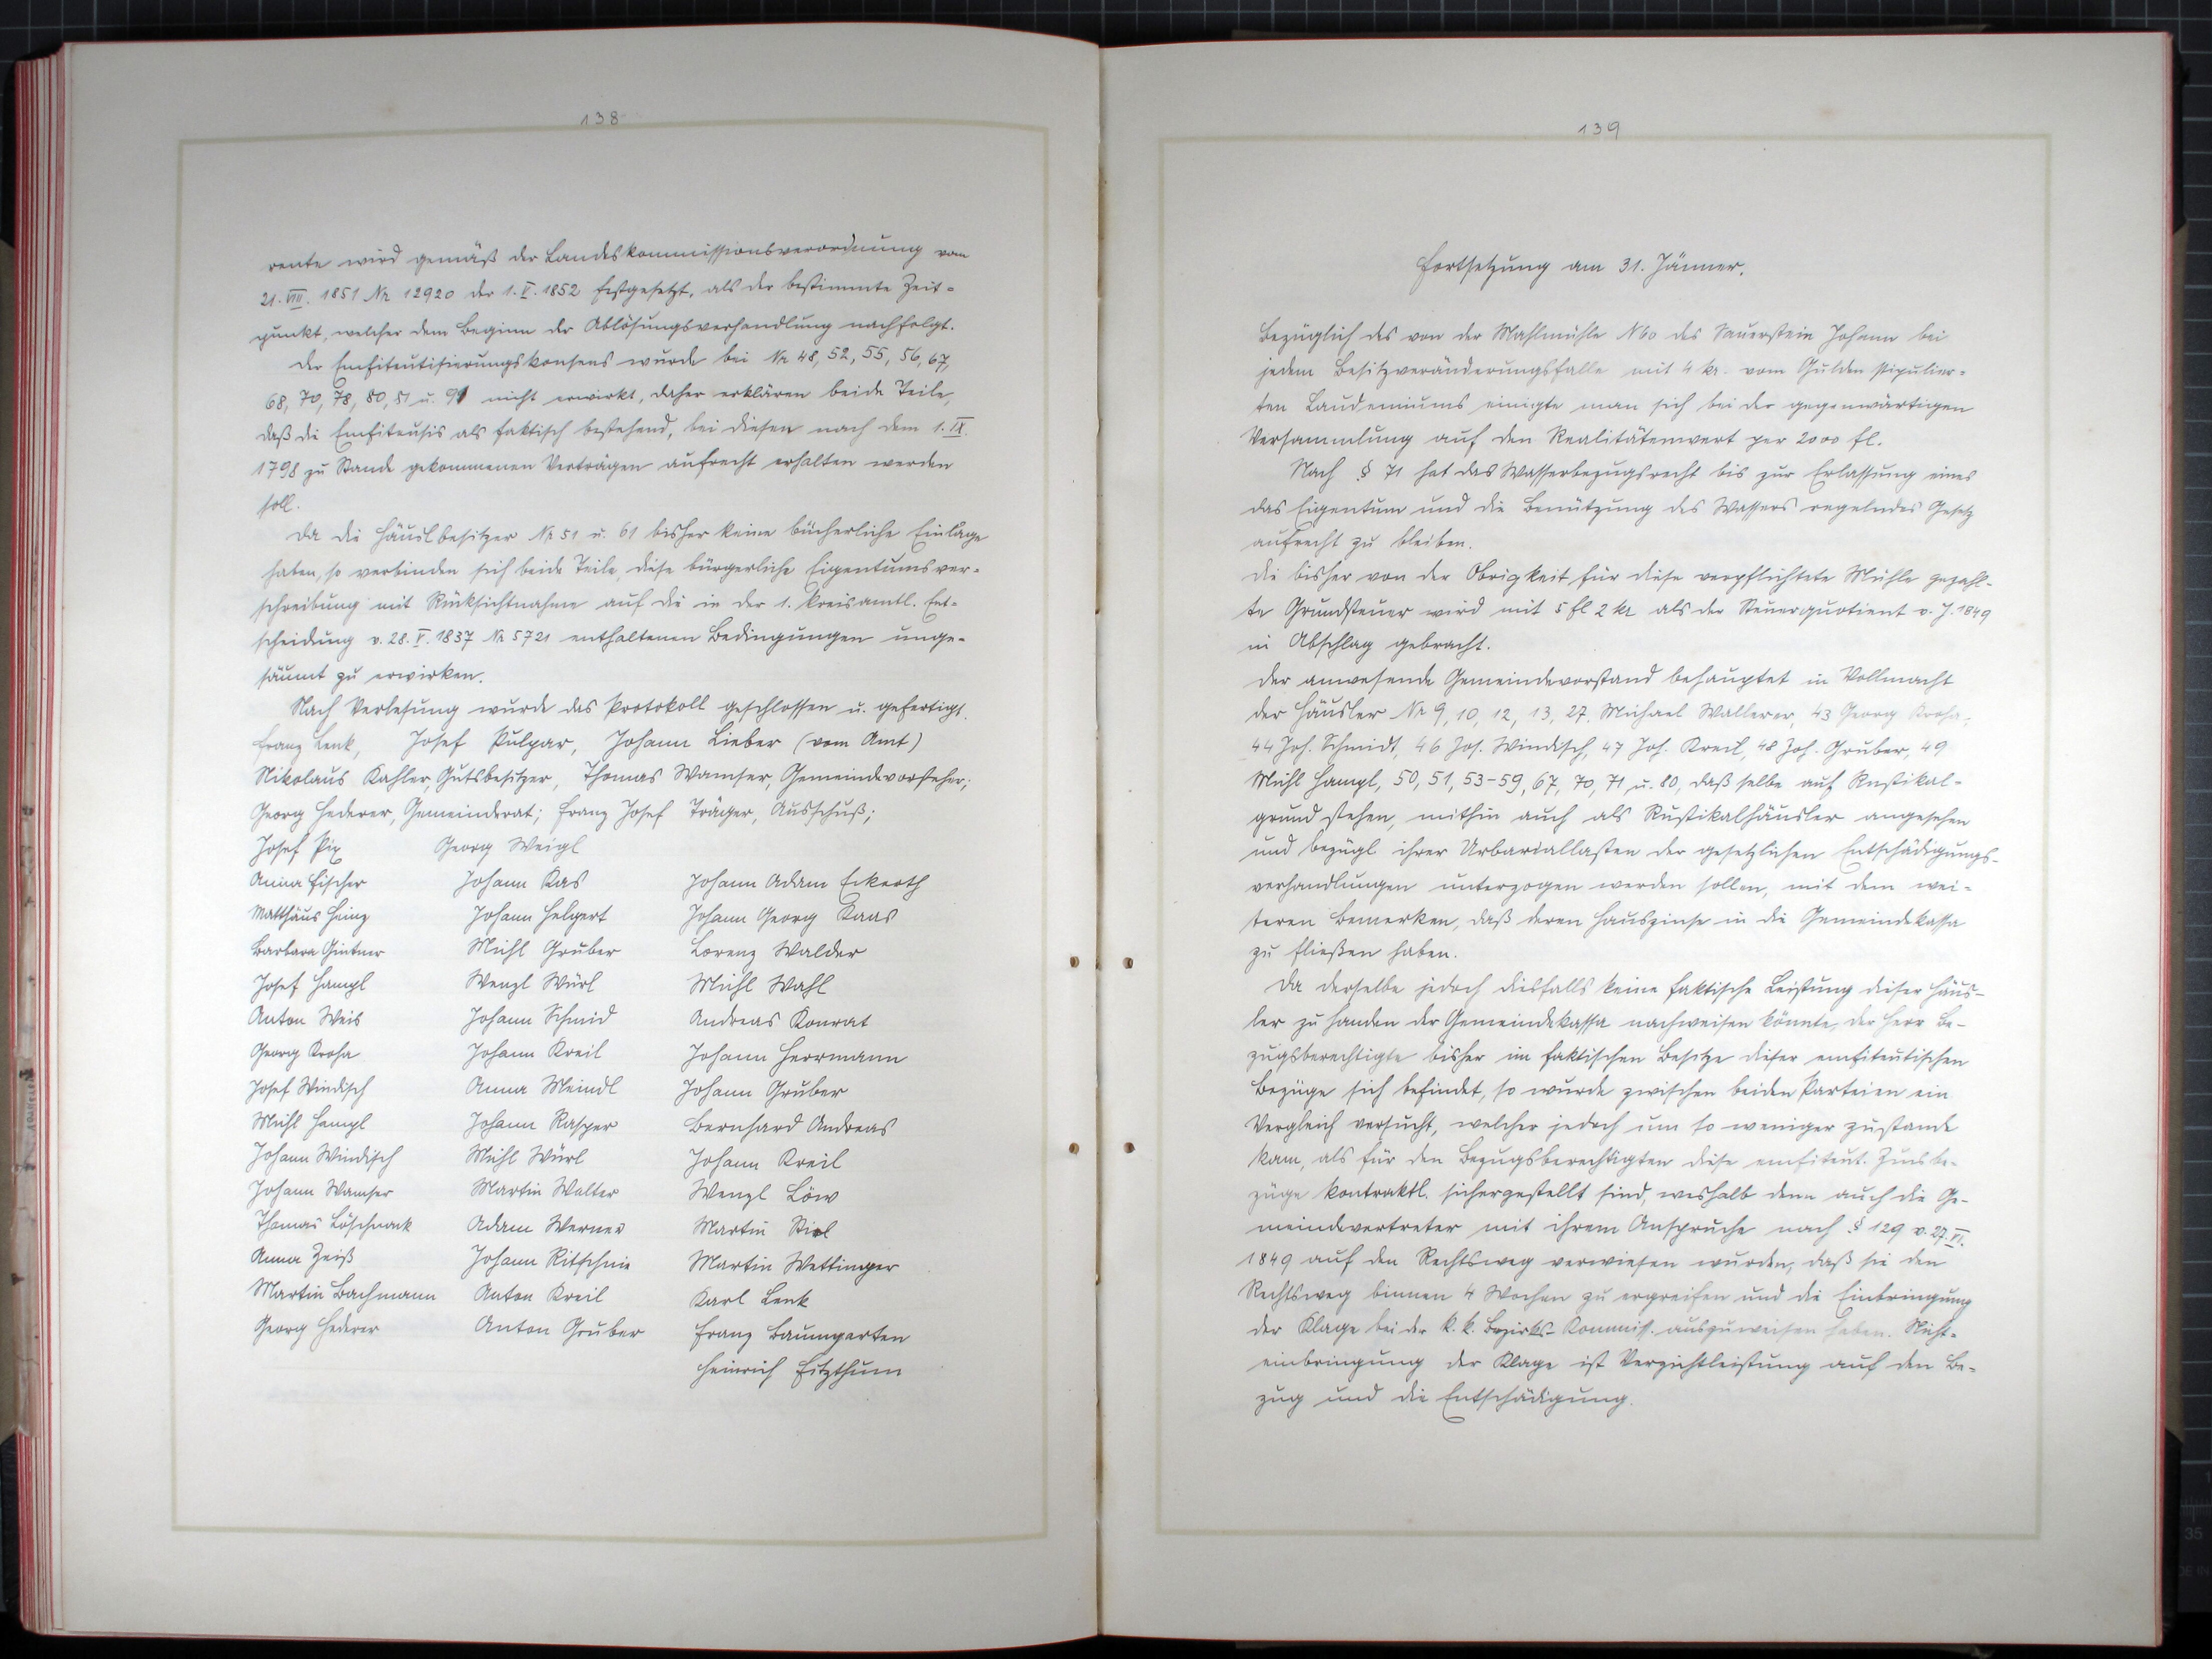 138
rente wird gemäß der Landeskommissionsverordnung vom
21. VIII. 1851 Nr 12920 der 1. V. 1852 festgesetzt, als der bestimmte Zeit-
punkt, welcher dem Beginn der Ablösungsverhandlung nachfolgt.
Der Emfiteutisierungskonsens wurde bei Nr 48, 52, 55, 56, 67,
68, 70, 78, 80, 81 u. 91 nicht erwirkt, daher erklären beide Teile,
daß die Emfiteusis als faktisch bestehend, bei diesen nach dem 1. IX.
1798 zu Stande gekommenen Verträgen aufrecht erhalten werden
soll.
Da die Häuslbesitzer Nr 51 u. 61 bisher keine bücherliche Einlage
haben, so verbinden sich beide Teile, diese bürgerliche Eigentumsver-
schreibung mit Rücksichtnahme auf die in der 1. kreisamtl. Ent-
scheidung v. 28. V. 1837 Nr 5721 enthaltenen Bedingungen unge-
säumt zu erwirken.
Nach Verlesung wurde das Protokoll geschlossen u. gefertigt.
Franz Lenk, Josef Pulpar, Johann Lieber (vom Amt)
Nikolaus Kahler, Gutsbesitzer, Thomas Wamser, Gemeindevorsteher;
Georg Hederer, Gemeinderat; Franz Josef Träger, Ausschuß;
Josef Pix Georg Weigl
Anna Fischer Johann Kas Johann Adam Eckerth
Matthäus Heinz Johann Helgert Johann Georg Kaas
Barbara Gintner Michl Gruber Lorenz Walder
Josef Hampl Wenzl Würl Michl Wahl
Anton Weis Johann Schmid Andreas Konrat
Georg Kroha Johann Kreil Johann Herrmann
Josef Windisch Anna Meindl Johann Gruber
Michl Hampl Johann Kasper Bernhard Andreas
Johann Windisch Michl Würl Johann Kreil
Johann Wamser Martin Walter Wenzl Löw
Thomas Löschnack Adam Werner Martin
Anna Zeiß Johann Ritschnie Martin Wettinger
Martin Bachmann Anton Kreil Karl Lenk
Georg Hederer Anton Gruber Franz Baumgarten
Heinrich Fitzthum
139
Fortsetzung am 31. Jänner.
Bezüglich des von der Mahlmühle N 60 des Sauerstein Johann bei
jedem Besitzveränderungsfalle mit 4 kr. vom Gulden stipulier-
ten Laudemiums einigte man sich bei der gegenwärtigen
Versammlung auf den Realitätenwert per 2000 fl.
Nach § 71 hat das Wasserbezugsrecht bis zur Erlassung eines
das Eigentum und die Benützung des Wassers regelndes Gesetz
aufrecht zu bleiben.
Die bisher von der Obrigkeit für diese verpflichtete Mühle gezahl-
te Grundsteuer wird mit 5 fl 2 kr als der Steuerquotient v. J. 1849
in Abschlag gebracht.
Der anwesende Gemeindevorstand behauptet in Vollmacht
der Häusler Nr 9, 10, 12, 13, 27. Michael Wallerer, 43 Georg Kroha,
44 Joh. Schmidt, 46 Jos. Windisch, 47 Joh. Kreil, 48 Joh. Gruber, 49
Michl Hampl, 50, 51, 53-59, 67, 70, 71 u. 80, daß selbe auf Rustikal-
grund stehen, mithin auch als Rustikalhäusler angesehen
und bezügl. ihrer Urbariallasten der gesetzlichen Entschädigungs-
verhandlungen unterzogen werden sollen, mit dem wei-
teren Bemerken, daß deren Hauszinse in die Gemeindekassa
zu fließen haben.
Da derselbe jedoch diesfalls keine faktische Leistung dieser Häus-
ler zu Handen der Gemeindekassa nachweisen könnte, der Herr Be-
zugsberechtigte bisher im faktischen Besitze dieser emfiteutischen
Bezüge sich befindet, so wurde zwischen beiden Parteien ein
Vergleich versucht, welcher jedoch um so weniger zustande
kam, als für den Bezugsberechtigten diese emfiteut. Zinsbe-
züge kontraktl. sichergestellt sind, weshalb denn auch die Ge-
meindevertreter mit ihrem Anspruche nach § 129 v. 27. VI.
1849 auf den Rechtsweg verwiesen wurden, daß sie den
Rechtsweg binnen 4 Wochen zu ergreifen und die Einbringung
der Klage bei der k. k. Bezirks-Kommiss. auszuweisen haben. Nicht-
einbringung der Klage ist Verzichtleistung auf den Be-
zug und die Entschädigung.